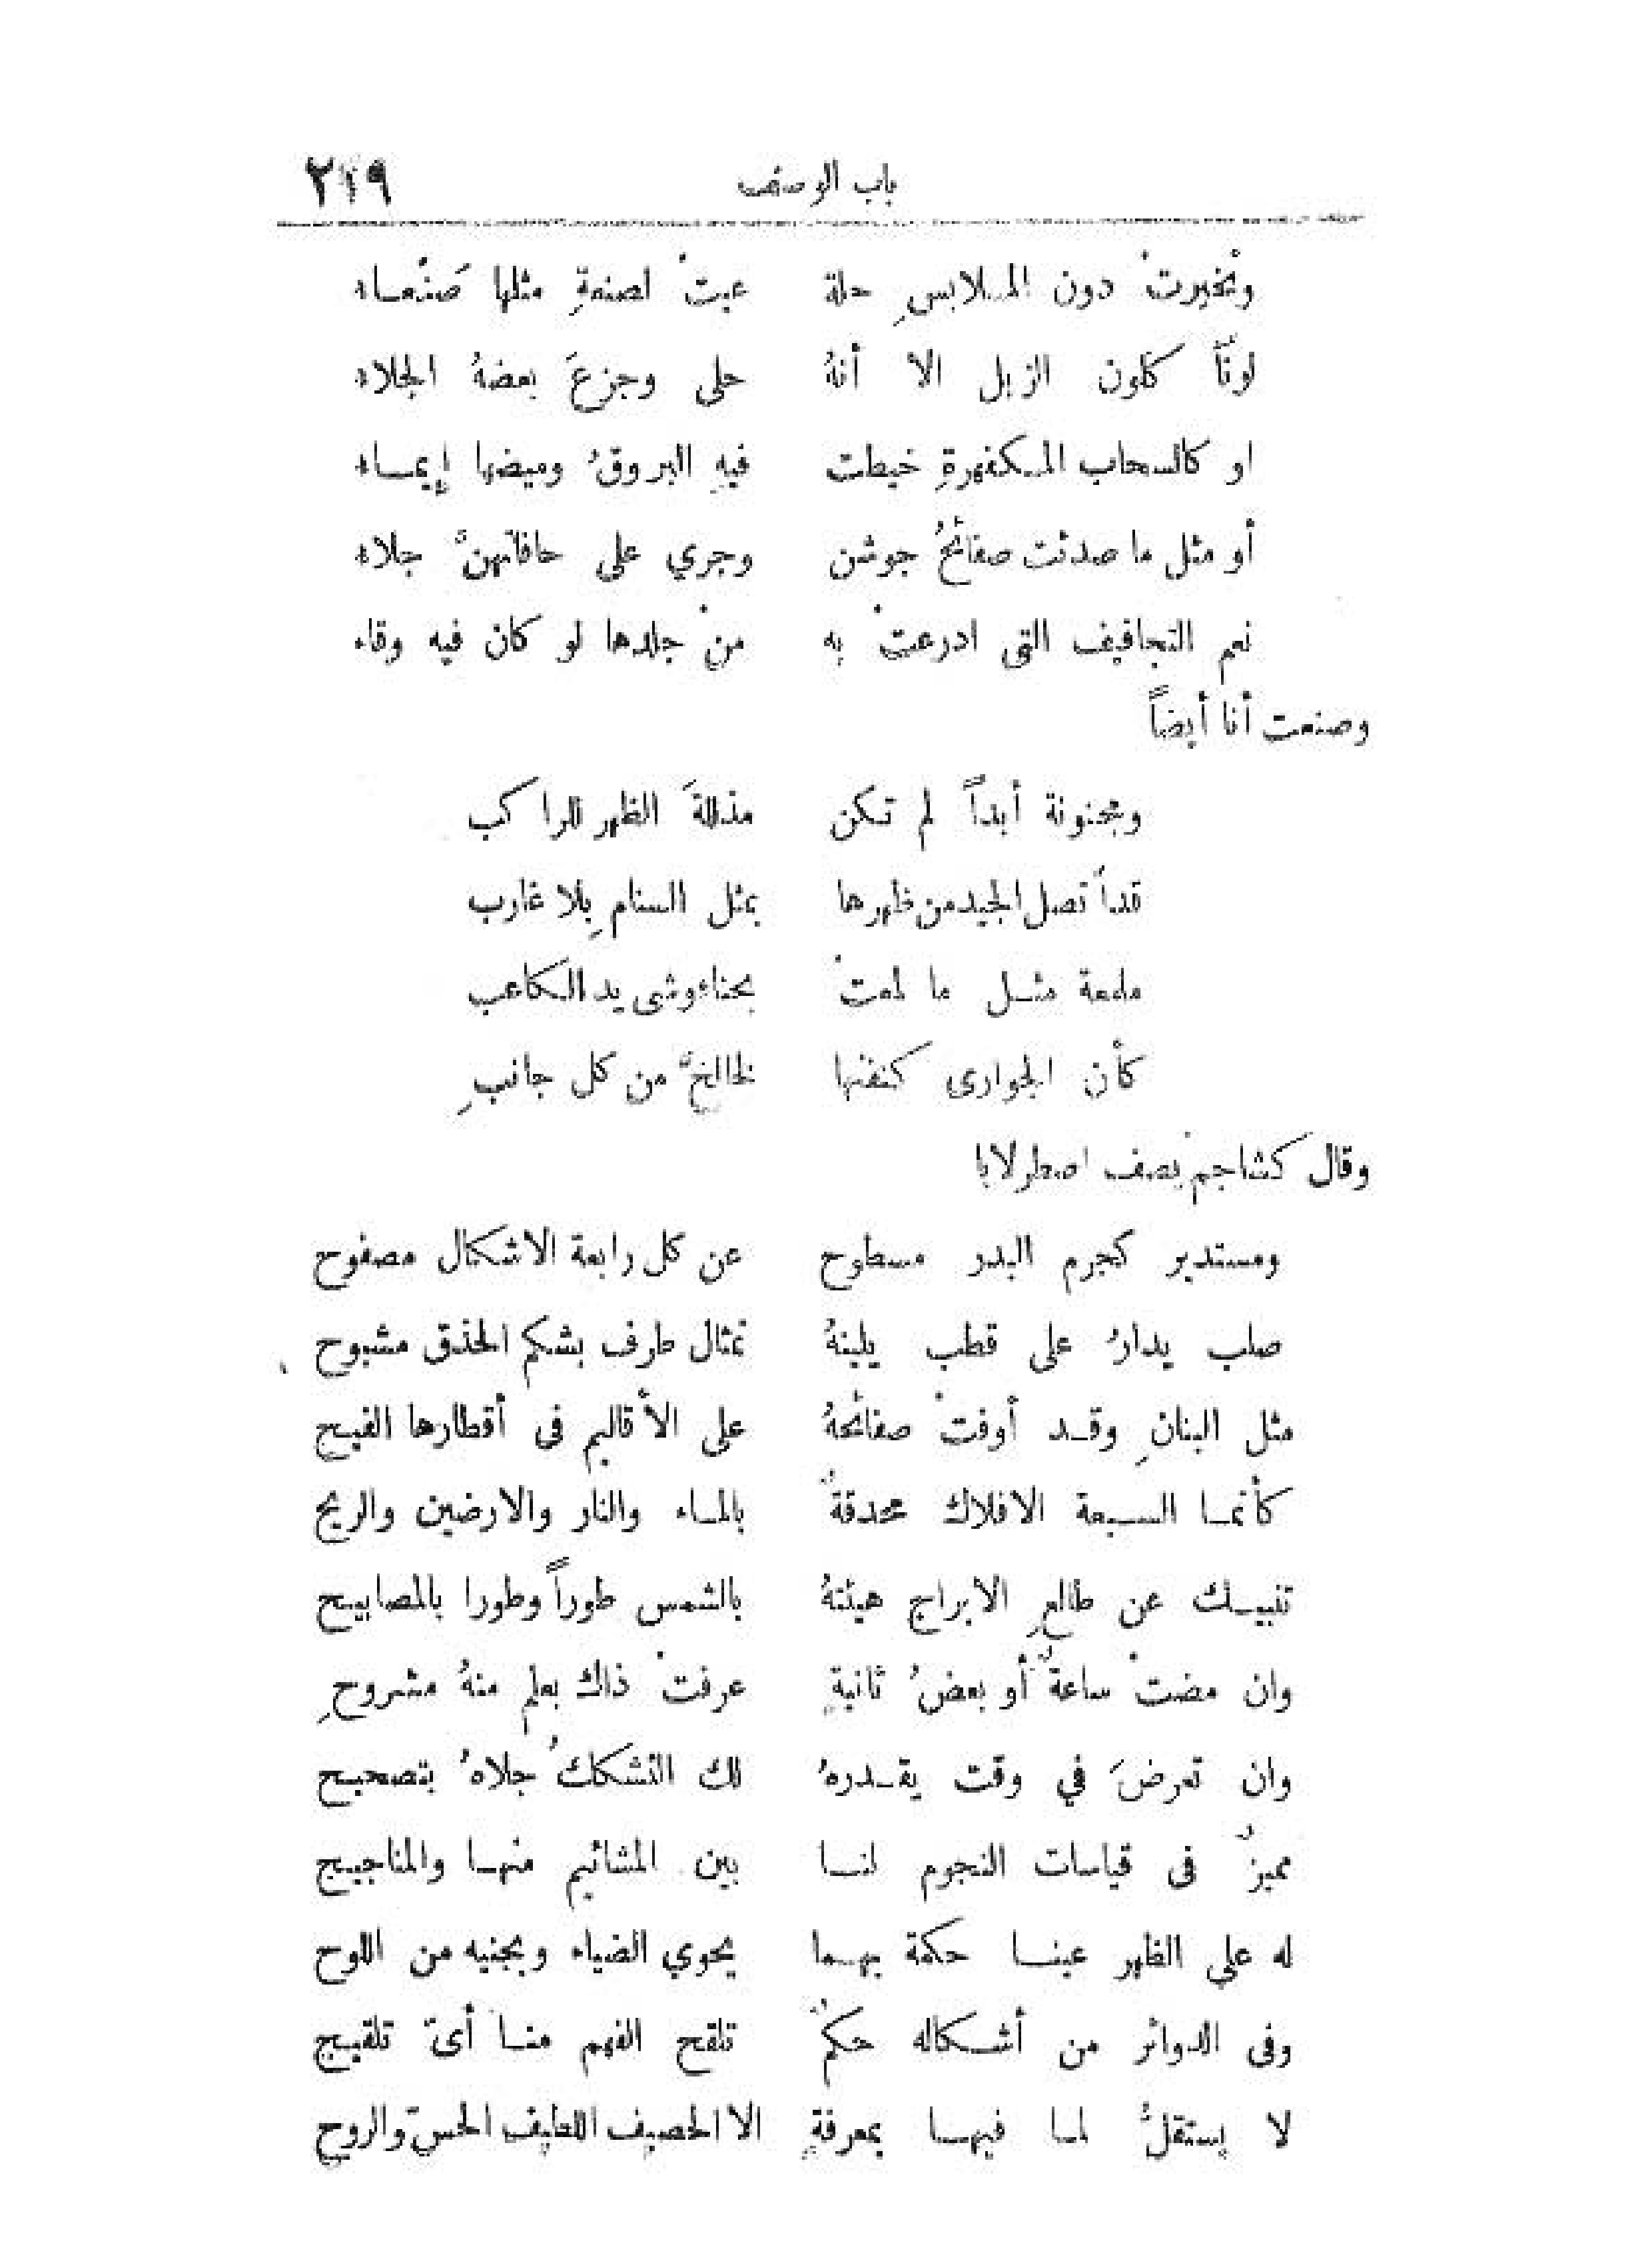 باب الوصف ٢١٩
وتخيرتْ دون الملابسِ حلة عيتْ لصنعةِ مثلها صَنْعاء
لوناً كلون الزبل الا أنهُ حلى وجزعَ بعضهُ الجلاء
او كالسحاب المكفهرةِ خيطت فيهِ البروقُ وميضها إيماء
أو مثل ما صدئت صفائحُ جوشن وجري على حافاتهنَّ جلاء
نعم التجافيف التى ادرعتْ به منْ جلدها لو كان فيه وقاء
وصنعت أنا أيضاً
ومجنونة أبداً لم تكن مذللةَ الظهر للراكب
قدا تصل الجيد من ظهرها بمثل السنامِ بلا غارب
ملمعة مثل ما لمعتْ بحناء وشى يد الكاعب
كأن الجوارى كنفنها خلاخلَ من كل جانبِ
وقال كشاجم يصف اصطرلابا
ومستدير كجرم البدر مسطوح عن كل رابعة الاشكال مصفوح
صلب يدارُ على قطب يلينهُ تمثال طرف بشكم الحذق مشبوح
مثل البنانِ وقد أوفتْ صفائحهُ على الأقاليم فى أقطارها الفيح
كأنما السبعة الافلاك محدقةٌ بالماء والنار والارضين والريح
تنبيك عن طالعِ الابراج هيئتهُ بالشمس طوراً وطورا بالمصابيح
وان مضتْ ساعةٌ أو بعضُ ثانيةٍ عرفتْ ذاك بعلم منهُ مشروحِ
وان تعرضَ في وقت يقدرهُ لك التشككُ جلاهُ بتصحيح
مميزٌ فى قياسات النجوم لنا بين المشائيم منها والمناجيح
له علي الظهر عينا حكمة بهما يحوي الضياء ويجنيه من اللوح
وفى الدوائر من أشكاله حكمٌ تلقح الفهم منا أىّ تلقيح
لا يستقلُّ لما فيها بمعرفةٍ الا الحصيف اللطيف الحسّ والروح